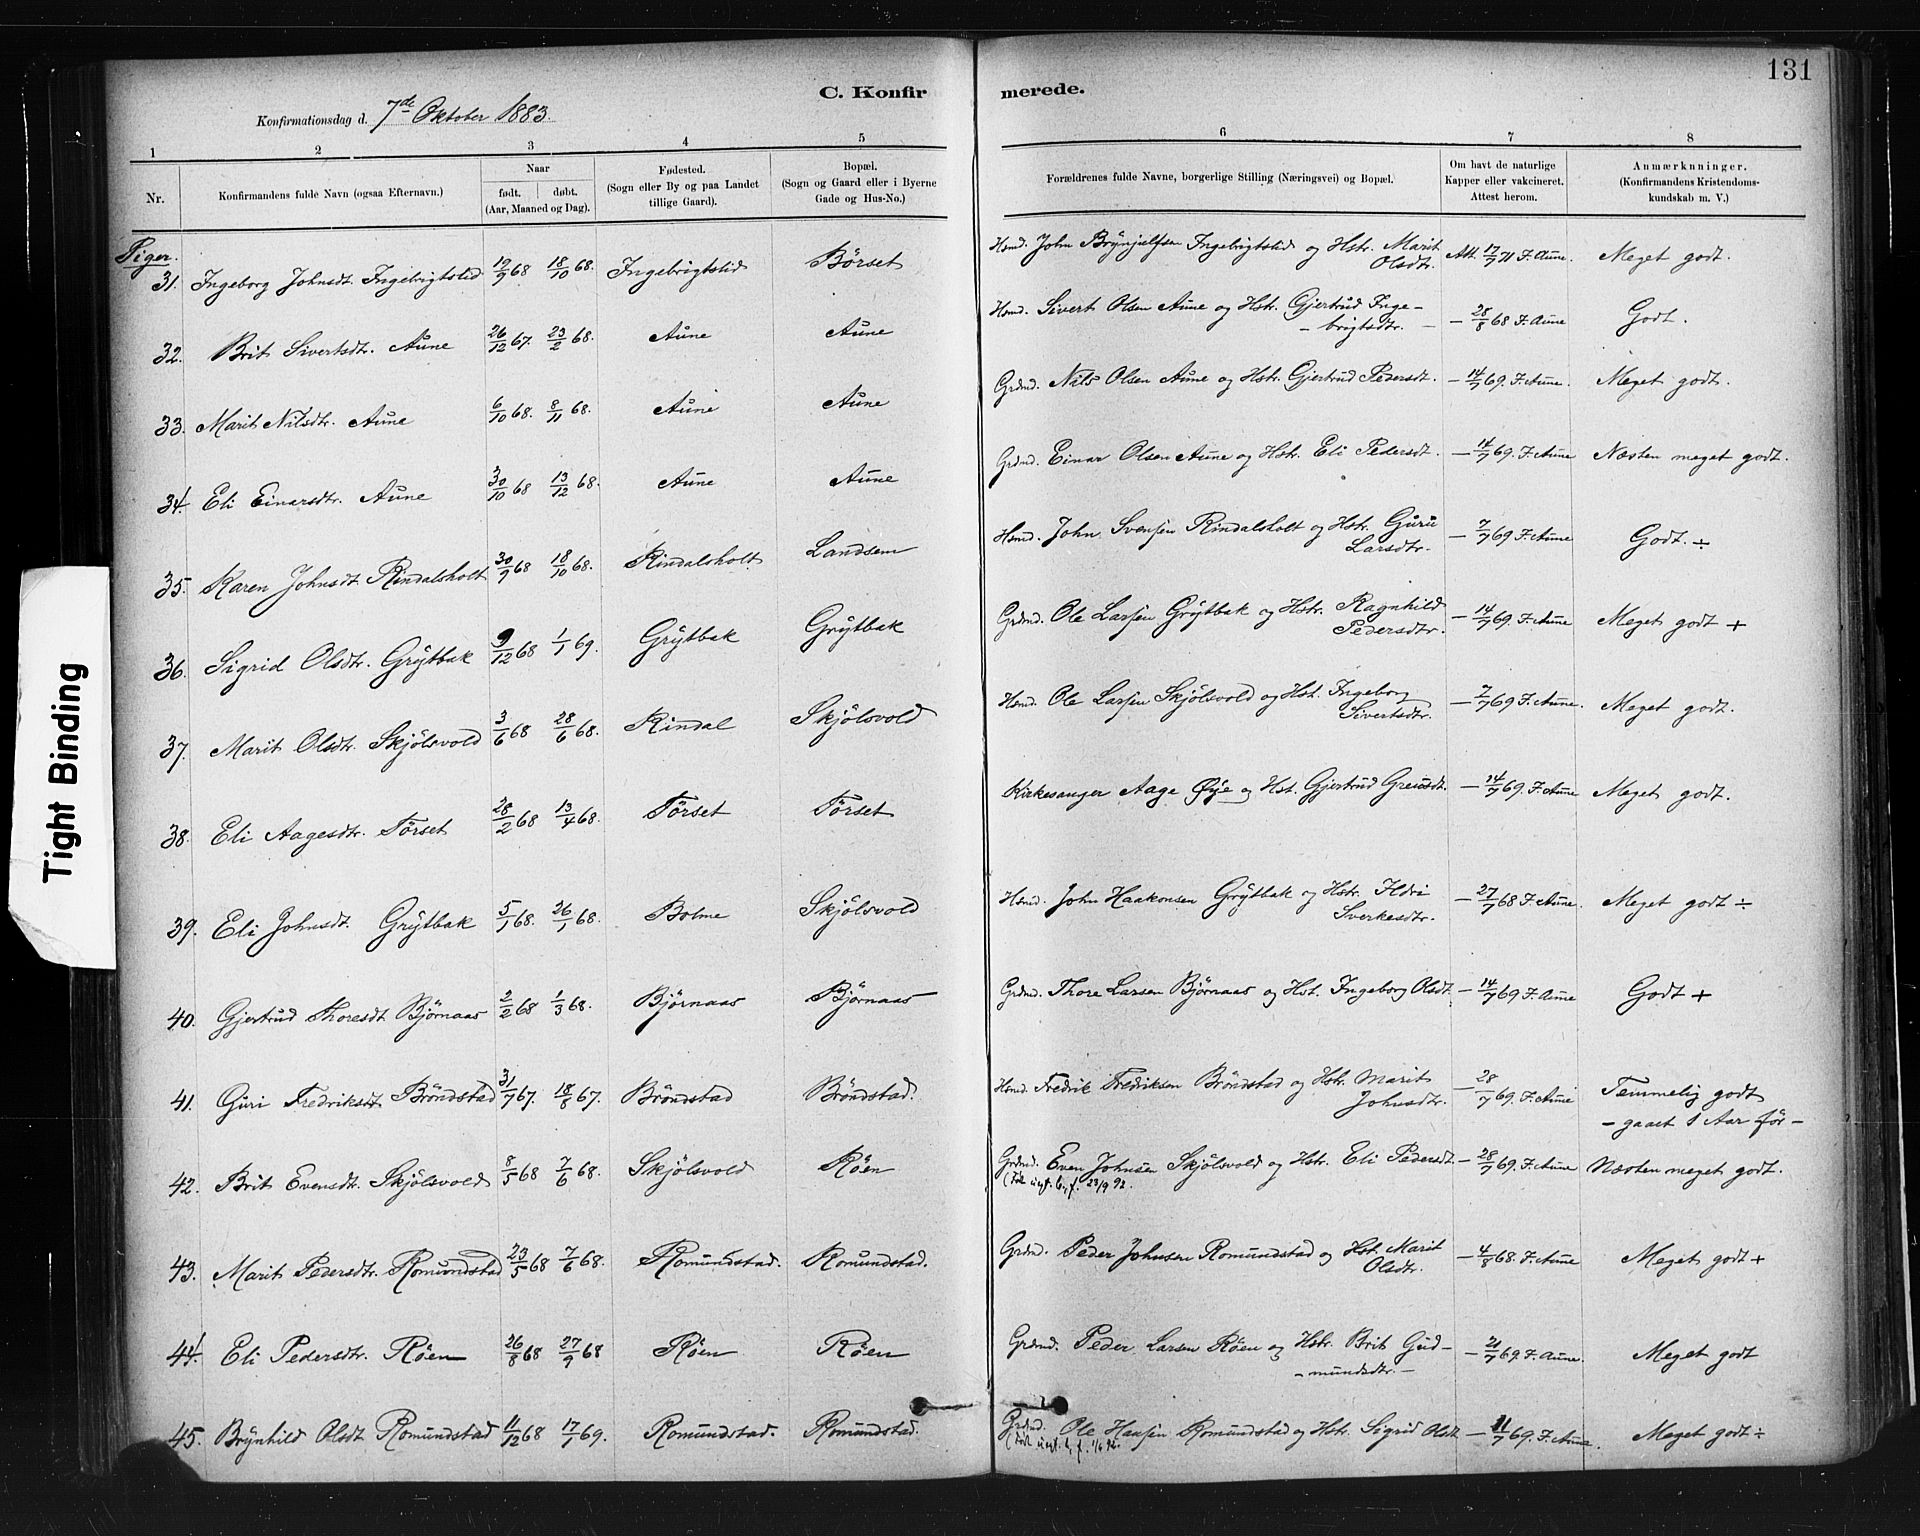 131
C. Konfirmerede.
Konfirmationsdag d. 7de Oktober 1883.
1 2 3 4 5 6 7 8
Nr. Konfirmandens fulde Navn (ogsaa Efternavn). Naar født. døbt. (Aar, Maaned og Dag). Fødested. (Sogn eller By og paa Landet tillige Gaard). Bopæl. (Sogn og Gaard eller i Byerne Gade og Hus-No.) Forældrenes fulde Navne, borgerlige Stilling (Næringsvei) og Bopæl. Om havt de naturlige Kapper eller vakcineret. Attest herom. Anmærkninger. (Konfirmandens Kristendomskundskab m. V.)
Piger.
31. Ingeborg Johnsdt. Ingebrigtslid 19/9 68 18/10 68. Ingebrigtslid Börset Hsmd. John Brynjulfsen Ingebrigtslid og Hstr. Marit Olsdtr. Att. 17/7 71 F. Aune. Meget godt.
32. Brit Sivertsdtr. Aune 26/12 67. 23/2 68. Aune Aune Hsmd. Sivert Olsen Aune og Hstr. Gjertrud Ingebrigtsdtr. — 28/8 68 F. Aune Godt.
33. Marit Nilsdtr. Aune 6/10 68. 8/11 68. Aune Aune Grdmd. Nils Olsen Aune og Hstr. Gjertrud Pedersdt. — 14/7 69. F. Aune. Meget godt.
34. Eli Einarsdtr. Aune 30/10 68 13/12 68. Aune Aune Grdmd. Einar Olsen Aune og Hstr. Eli Pedersdt. — 14/7 69. F. Aune Næsten meget godt.
35. Karen Johnsdt. Rindalsholt 30/9 68 18/10 68. Rindalsholt Landsem Hsmd. John Svensen Rindalsholt og Hstr. Guru Larsdtr. — 7/7 69 F. Aune Godt. ÷
36. Sigrid Olsdtr. Grytbak 9/12 68 1/1 69. Grytbak Grytbak Grdmd. Ole Larsen Grytbak og Hstr. Ragnhild Pedersdtr. — 14/7 69. F. Aune Meget godt +
37. Marit Olsdtr. Skjölsvold 3/6 68 28/6 68. Rindal Skjölsvold Hsmd. Ole Larsen Skjölsvold og Hst. Ingeborg Sivertsdtr. — 7/7 69 F. Aune. Meget godt.
38. Eli Aagesdtr. Törset 28/2 68 13/4 68. Törset Törset Kirkesanger Aage Øye og Hst. Gjertrud Greusdt. — 14/7 69. F. Aune Meget godt.
39. Eli Johnsdt. Grytbak 5/1 68. 26/1 68. Bolme Skjölsvold Hsmd. John Haakonsen Grytbak og Hstr. Ildri Sverkesdtr. — 27/7 68 F. Aune. Meget godt ÷
40. Gjertrud Thoresdt. Björnaas 2/2 68 1/3 68. Björnaas Björnaas Grdmd. Thore Larsen Björnaas og Hst. Ingeborg Olsdt. — 14/7 69 F. Aune Godt +
41. Guri Fredriksdt Bröndstad 31/7 67. 18/8 67. Bröndstad Bröndstad. Hsmd. Fredrik Fredriksen Bröndstad og Hstr. Marit Johnsdtr. — 28/7 69. F. Aune Temmelig godt
— gaaet 1 Aar för —
42. Brit Evensdt. Skjölsvold 8/5 68 7/6 68. Skjölsvold Röen Grdmd. Even Johnsen Skjölsvold og Hstr. Eli Pedersdt. — 28/7 69. F. Aune Næsten meget godt.
23/9 92.
43. Marit Pedersdtr. Romundstad 23/5 68 7/6 68. Romundstad. Romundstad. Grdmd. Peder Johnsen Romundstad og Hst. Marit Olsdtr. — 4/8 68. F. Aune Meget godt +
44. Eli Pedersdtr. Röen 26/8 68 27/9 68 Röen Röen Grdmd. Peder Larsen Röen og Hstr. Brit Gudmundsdtr. — 21/7 69. F. Aune. Meget godt
45. Brynhild Olsdt Romundstad 11/12 68 17/1 69. Romundstad. Romundstad. Grdmd. Ole Hansen Romundstad og Hstr. Sigrid Olsdt — 11/7 69. F. Aune. Meget godt ÷
Tight Binding